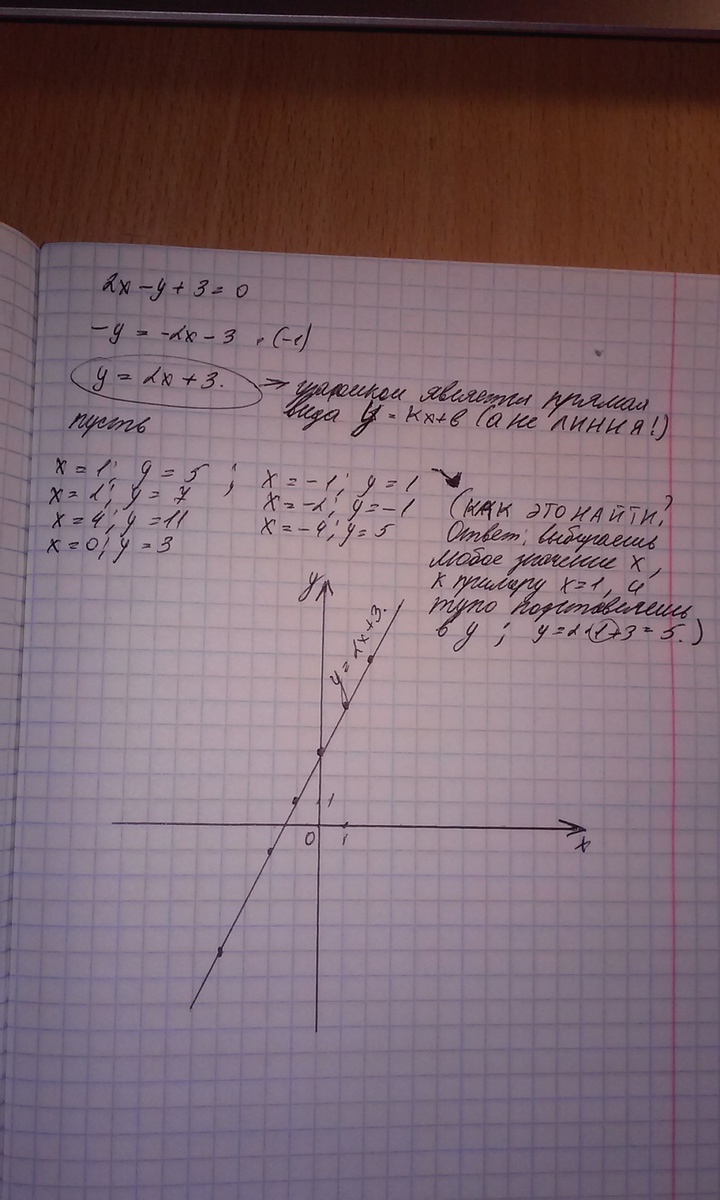 2x - y + 3 = 0
-y = -2x - 3 · (-1)
y = 2x + 3. → графиком является прямая
вида y = kx + b (а не ЛИНИЯ!)
пусть
x = 1; y = 5 ;
x = 2; y = 7
x = 4; y = 11
x = 0; y = 3
x = -1; y = 1
x = -2; y = -1
x = -4; y = 5
(КАК ЭТО НАЙТИ?
Ответ: выбираешь
любое значение x,
к примеру x=1, и
тупо подставляешь
в y ; y = 2·1+3 = 5.)
y
y = 2x+3.
1
0
1
x